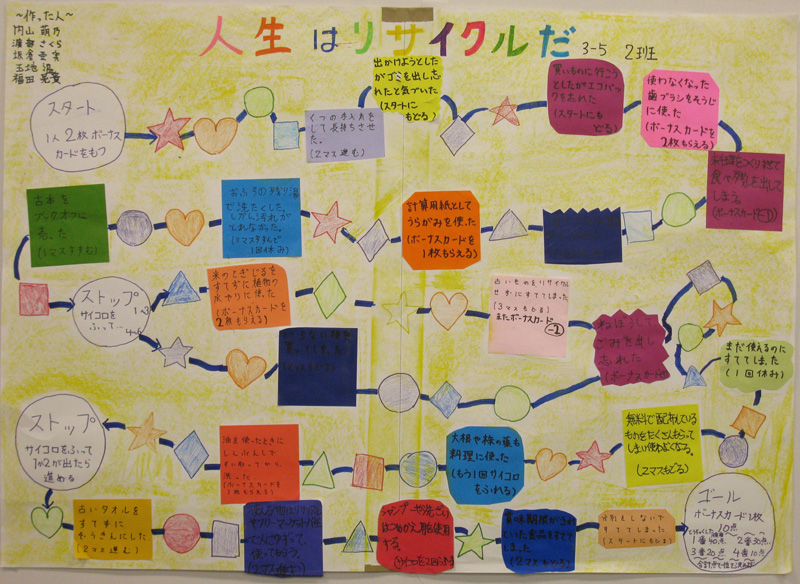 ～作った人～
内山 萌乃
渡部 さくら
福田
人生はリサイクルだ
3-5 2班
スタート
1人2枚ボーナス
カードをもつ
くつの手入れを
して長持ちさせ
た。
(2マス進む)
出かけようとした
がゴミを出し忘
れたと気づいた
(スタートに
もどる)
買いものに行こう
としたがエコバッ
グを忘れた
(スタートにも
どる)
使わなくなった
歯ブラシをそうじ
に使った
(ボーナスカードを
2枚もらえる)
料理をつくりすぎて
食べ残しを出して
しまう。
(ボーナスカード-1)
計算用紙として
うらがみを使った
(ボーナスカードを
1枚もらえる)
おふろの残り湯
で洗たくした。
しかし汚れが
とれなかった。
(1マスすすんで
1回休み)
古本を
ブックオフに
売った
(1マスすすむ)
ストップ
サイコロを
ふって…
1~3
4~6
米のとぎじるを
すてずに植物の
水やりに使った
(ボーナスカードを
2枚もらえる)
古いものをリサイクル
せずにすててしまった
(3マスもどる)
またボーナスカード
-2
ねぼうして
ごみを出し
忘れた
(ボーナスカード
まだ使えるのに
すててしまった
(1回休み)
無料で配布している
ものをたくさんもらって
しまい使わなくなる。
(2マスもどる)
大根や株の葉も
料理に使った
(もう1回サイコロ
をふれる)
油を使ったときに
しんぶんしで
すい取ってから
洗った
(ボーナスカードを
1枚もらえる)
ストップ
サイコロをふって
1か2が出たら
進める
古いタオルを
すてずに
ぞうきんにした
(2マス進む)
シャンプーや洗ざい
はつめかえ用を使用
する。
賞味期限が切れて
いた食品をすてて
しまった
(2マスもどる)
分別をしないで
すててしまった
(スタートにもどる)
ゴール
ボーナスカード1枚
10点
1番40点 2番30点
3番20点 4番10点
合計点で順位が決まる